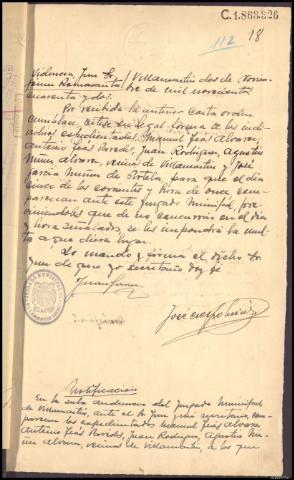 C.1.868.826
112
18
Providencia, Juez Sr. / Villamartin dos de Noviem-
bre de mil novecientos
cuarenta y dos.
Por recibida la anterior carta orden
cumplase, citese en legal forma a los indi-
viduos expedientados Manuel Frías Alvarez
Antonio Frías Paredes, Juan Rodriguez, Agustin
Muñiz Alvarez, vecinos de Villamartin y José
Garcia Muñoz de Portela para que el dia
cinco de los corrientes y hora de once com-
parezcan ante este Juzgado Municipal, pre
viniendoles que de no concurrir en el dia
y hora señalados se les impondrá la mul-
ta a que diera lugar.
Lo mando y firma el dicho Sr
Juez de que yo secretario doy fe
Notificacion
En la sala audiencia del Juzgado Municipal
de Villamartin, ante el Sr Juez y mi secretario, com-
parecen los expedientados Manuel Frías Alvarez
Antonio Frías Paredes, Juan Rodriguez, Agustin Mu-
ñiz Alvarez, vecinos de Villamartin, a los que